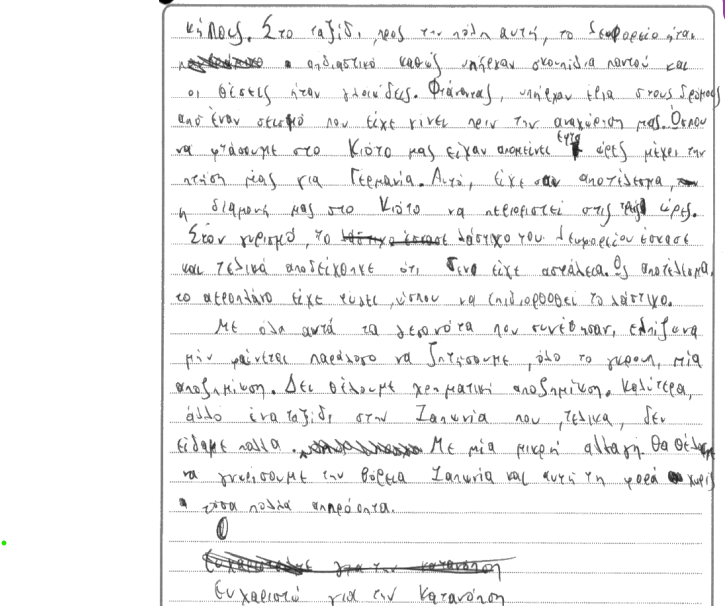 κήπους. Στο ταξίδι, προς την πόλη αυτή, το λεωφορείο ήταν
αηδιαστικό καθώς υπήρχαν σκουπίδια παντού και
οι θέσεις ήταν γλοιώδεις. Φτάνοντας, υπήρχαν έργα στους δρόμους
από έναν σεισμό που είχε γίνει πριν την αναχώρηση μας. Ώσπου
να φτάσουμε στο Κιότο μας είχαν απομείνει εφτά ώρες μέχρι την
πτήση μας για Γερμανία. Αυτό, είχε σαν αποτέλεσμα,
η διαμονή μας στο Κιότο να περιοριστεί στις τρεις ώρες.
Στον γυρισμό, το λάστιχο του λεωφορείου έσκασε
και τελικά αποδείχθηκε ότι δεν είχε ασφάλεια. Ως αποτέλεσμα,
το αεροπλάνο είχε φύγει, ώσπου να επιδιορθωθεί το λάστιχο.
Με όλα αυτά τα γεγονότα που συνέβησαν, ελπίζω να
μήν φαίνεται παράλογο να ζητήσουμε, όλο το γκρουπ, μία
αποζημίωση. Δεν θέλουμε χρηματική αποζημίωση. Καλύτερα,
άλλο ένα ταξίδι στην Ιαπωνία που, τελικά, δεν
είδαμε πολλα. Με μία μικρή αλλαγή. Θα θέλαμε
να γνωρίσουμε την βόρεια Ιαπωνία και αυτή τη φορά χωρίς
τόσα πολλά απρόοπτα.
Ευχαριστώ για την κατανόηση